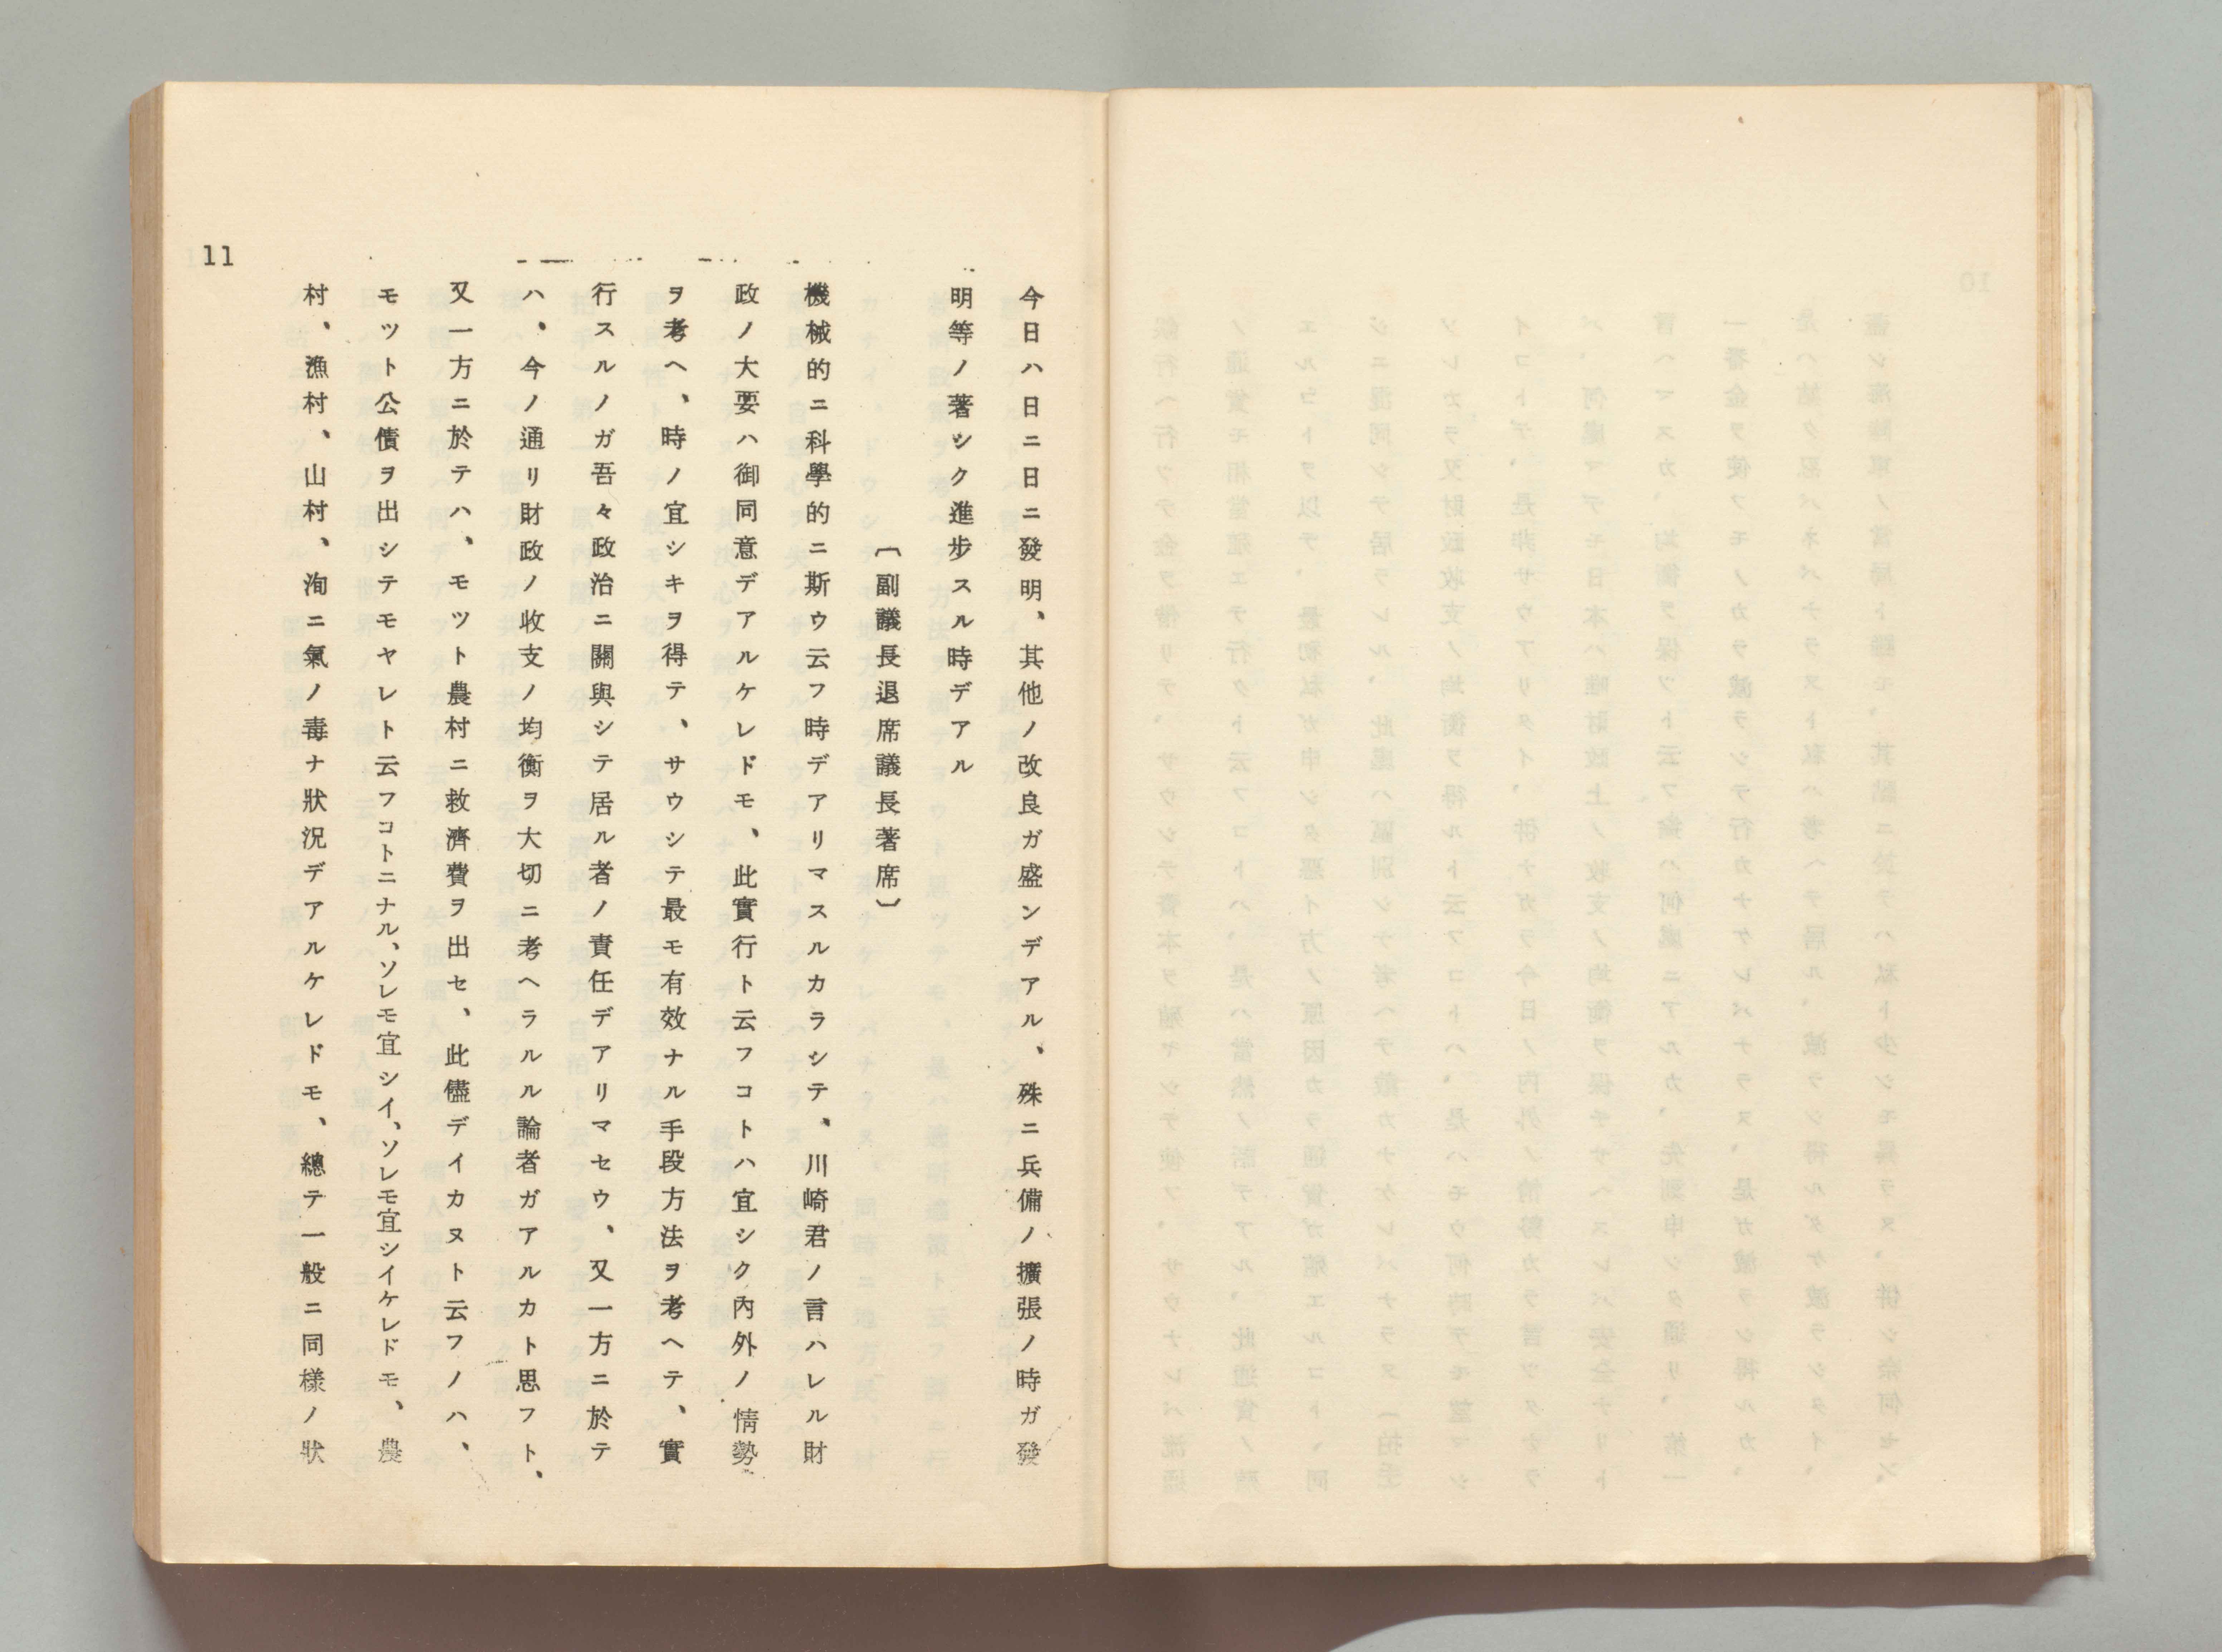 今日ハ日ニ日ニ發明、其他ノ改良ガ盛ンデアル、殊ニ兵備ノ擴張ノ時ガ發
明等ノ著シク進步スル時デアル
〔副議長退席議長著席〕
機械的ニ科學的ニ斯ウ云フ時デアリマスルカラシテ、川崎君ノ言ハレル財
政ノ大要ハ御同意デアルケレドモ、此實行ト云フコトハ宜シク內外ノ情勢
ヲ考ヘ、時ノ宜シキヲ得テ、サウシテ最モ有效ナル手段方法ヲ考ヘテ、實
行スルノガ吾々政治ニ關與シテ居ル者ノ責任デアリマセウ、又一方ニ於テ
ハ、今ノ通リ財政ノ收支ノ均衡ヲ大切ニ考ヘラルル論者ガアルカト思フト、
又一方ニ於テハ、モツト農村ニ救濟費ヲ出セ、此儘デイカヌト云フノハ、
モツト公債ヲ出シテモヤレト云フコトニナル、ソレモ宜シイ、ソレモ宜シイケレドモ、農
村、漁村、山村、洵ニ氣ノ毒ナ狀況デアルケレドモ、總テ一般ニ同樣ノ狀
11